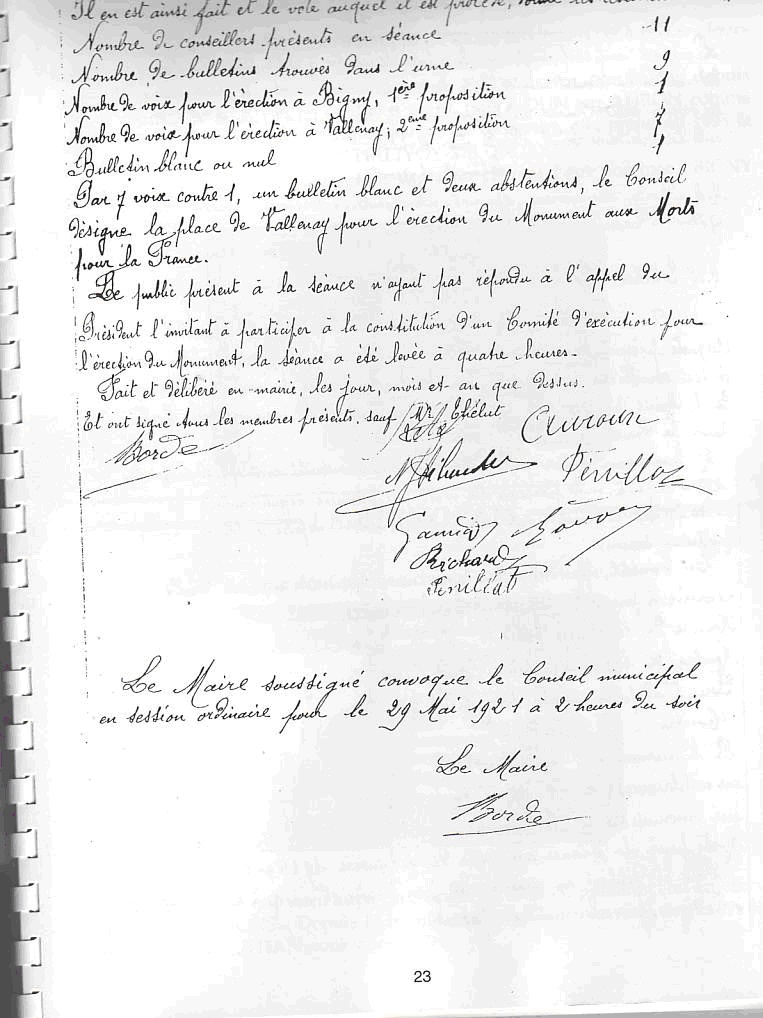 Il en est ainsi fait et le vote auquel il est procédé, donne les
Nombre de conseillers présents en séance 11
Nombre de bulletins trouvés dans l'urne 9
Nombre de voix pour l'érection à Bigny, 1ère proposition 1
Nombre de voix pour l'érection à Vallenay, 2eme proposition 7
Bulletin blanc ou nul 1
Par 7 voix contre 1, un bulletin blanc et deux abstentions, le Conseil
désigne la place de Vallenay pour l'érection du Monument aux Morts
pour la France.
Le public présent à la séance n'ayant pas répondu à l'appel du
Président l'invitant à participer à la constitution d'un Comité d'exécution pour
l'érection du Monument, la séance a été levée à quatre heures.
Fait et délibéré en mairie, les jour, mois et an que dessus.
Et ont signé tous les membres présents, sauf Mr Chélut
Borde
Richard
Le Maire soussigné convoque le Conseil municipal
en session ordinaire pour le 29 Mai 1921 à 2 heures du soir
Le Maire
Borde
23